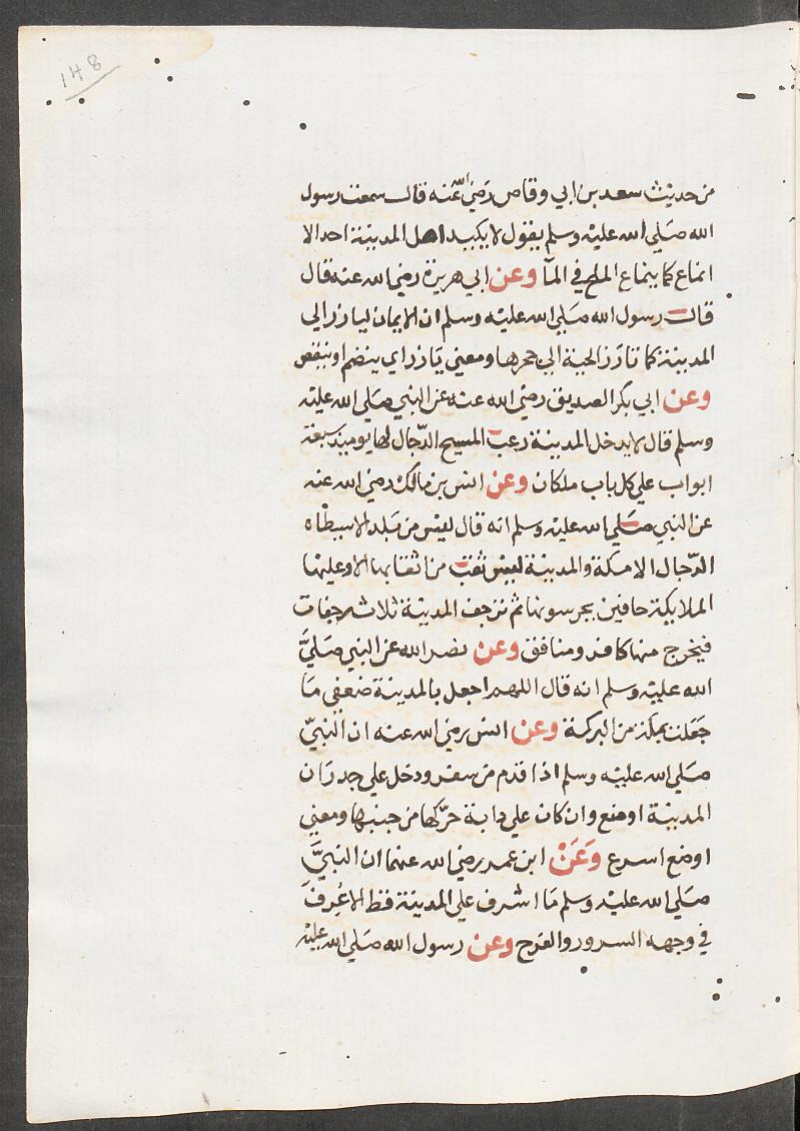 148
من حديث سعد بن ابي وقاص رضي الله عنه قال سمعت رسول
الله صَلي الله عليه وسلم يقول لا يكيد اهل المدينة احد الا
انماع كما ينماع الملح في المآ وعن ابي هريرة رضي الله عنه قال
قال رسول الله صَلي الله عليه وسلم ان الايمان ليارز الي
المدينة كما تارز الحية الي جحرها ومعني يارز اي ينضم او ينقبض
وعن ابي بكر الصديق رضي الله عنه عن النبي صَلي الله عليه
وسلم قال لا يدخل المدينة رعب المسيح الدّجال لها يوميذ سبعة
ابواب علي كل باب ملكان وعن انس بن مالك رضي الله عنه
عن النبي صَلي الله عليه وسلم انه قال ليس من بَلد الا سيطاه
الدّجال الا مكة والمدينة ليس نقب من انقابها الا وعليها
الملايكة حافين يحرسونها ثم ترجف المدينة ثلاث رجفات
فيخرج منها كافر ومنافق وعن نضر الله عن النبي صَليَّ
الله عليه وسلم انه قال اللهم اجعل بالمدينة ضعفي مَا
جَعَلت بمكة من البركة وعن انس رضي الله عنه ان النبيّ
صَلي الله عليه وسلم اذا قدم من سفر ودخل علي جدرَان
المدينة اوضع وان كان علي دابة حرّكها من جنبها ومعني
اوضع اسرع وَعَنْ ابن عمر رضي الله عنهما ان النبيَّ
صَلي الله عليه وسلم مَا اشرف علي المدينة قط الا عُرِفَ
في وجهه السرور والفرح وعن رسول الله صَلي الله عليه